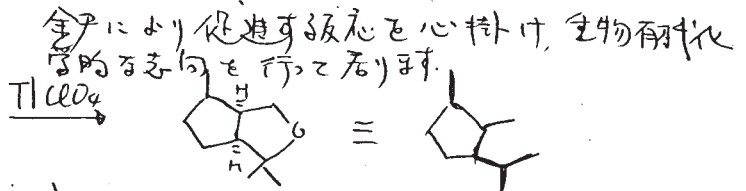 により促進する反応を心掛け、生物有機化
学的な志向を行って居ります。
TlClO4
H
O
H